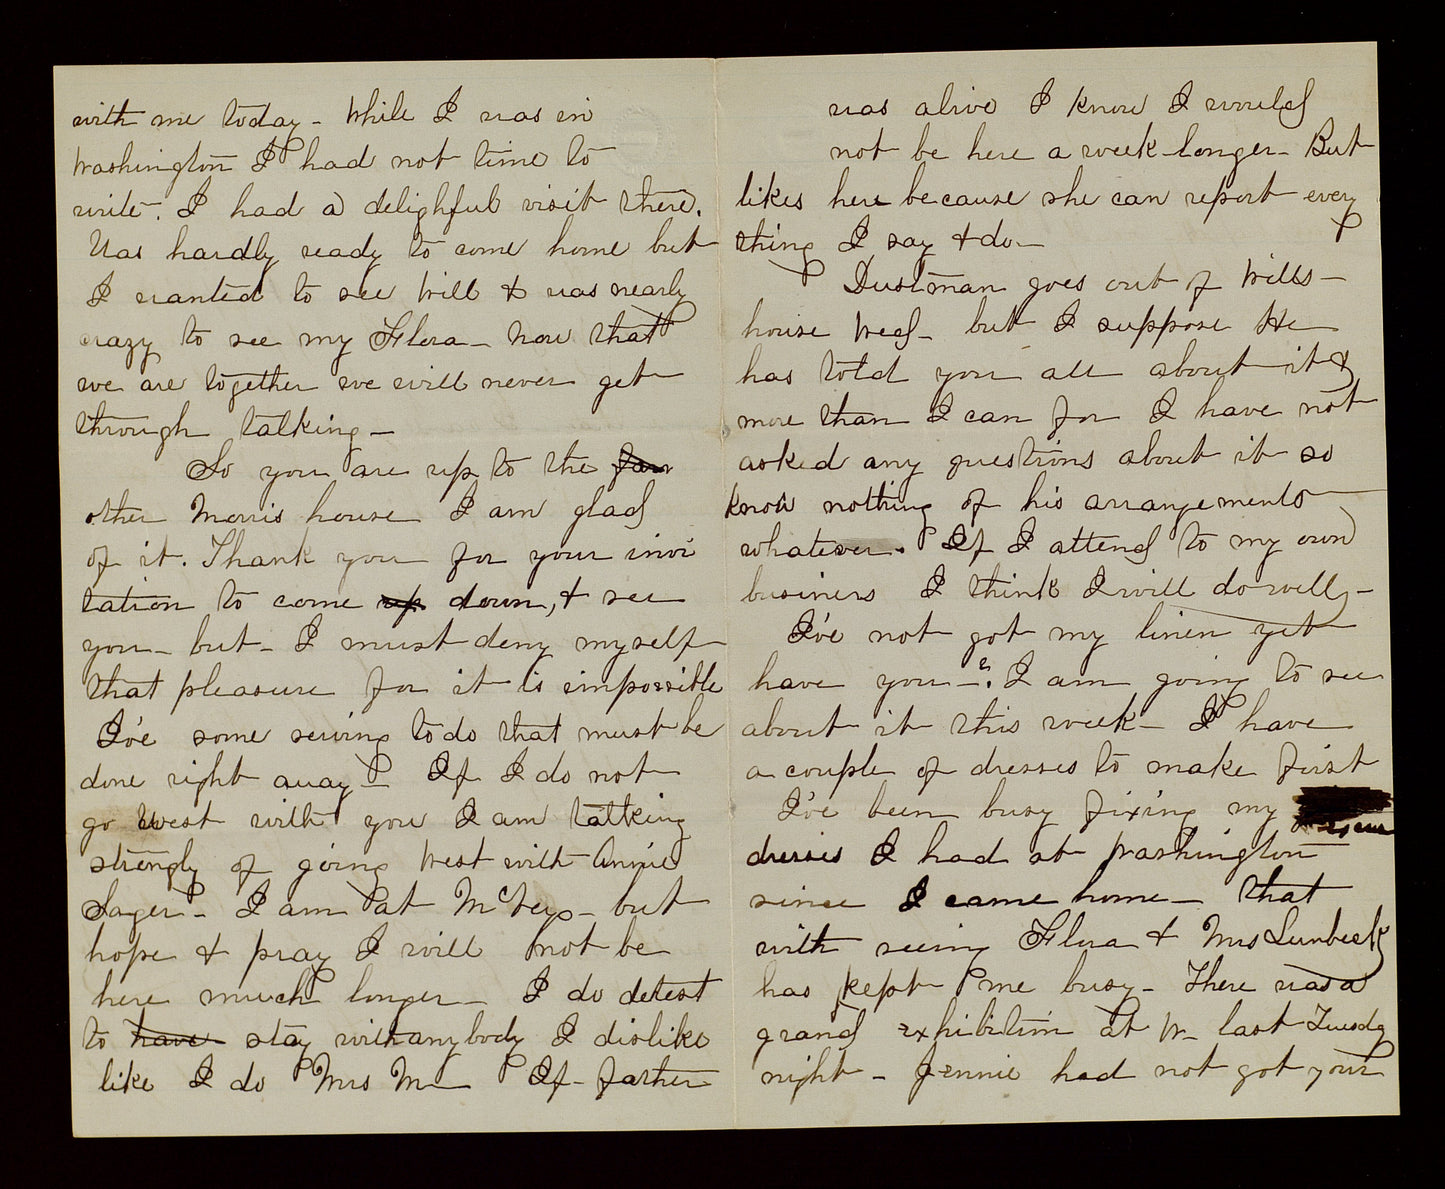 with me today - While I was in
Washington I had not time to
write. I had a delighful visit there.
Was hardly ready to come home but
I wanted to see Will & was nearly
crazy to see my Flora - now that
we are together we will never get
through talking -
So you are up to the far
other Morris house I am glad
of it. Thank you for your invi
tation to come up down, & see
you - but - I must deny myself
that pleasure for it is impossible
I've some sewing to do that must be
done right away - If I do not
go West with you I am talking
strongly of going West with Annie
Sager - I am at McVeys - but
hope & pray I will not be
here much longer - I do detest
to have stay with anybody I dislike
like I do Mrs M - If father
was alive I know I would
not be here a week longer - But
likes here because she can report every
thing I say & do -
Dustman goes out of Wills -
house Wed - but I suppose He
has told you all about it &
more than I can for I have not
asked any questions about it so
know nothing of his arrangements
whatever. If I attend to my own
business I think I will do well -
I've not got my linen yet
have you - ? I am going to see
about it this week - I have
a couple of dresses to make first
I've been busy fixing my
dresses I had at Washington
since I came home - that
with seeing Flora & Mrs Lunbeck
has kept me busy - There was a
grand exhibition at W - last Tuesdy
night - Jennie had not got your